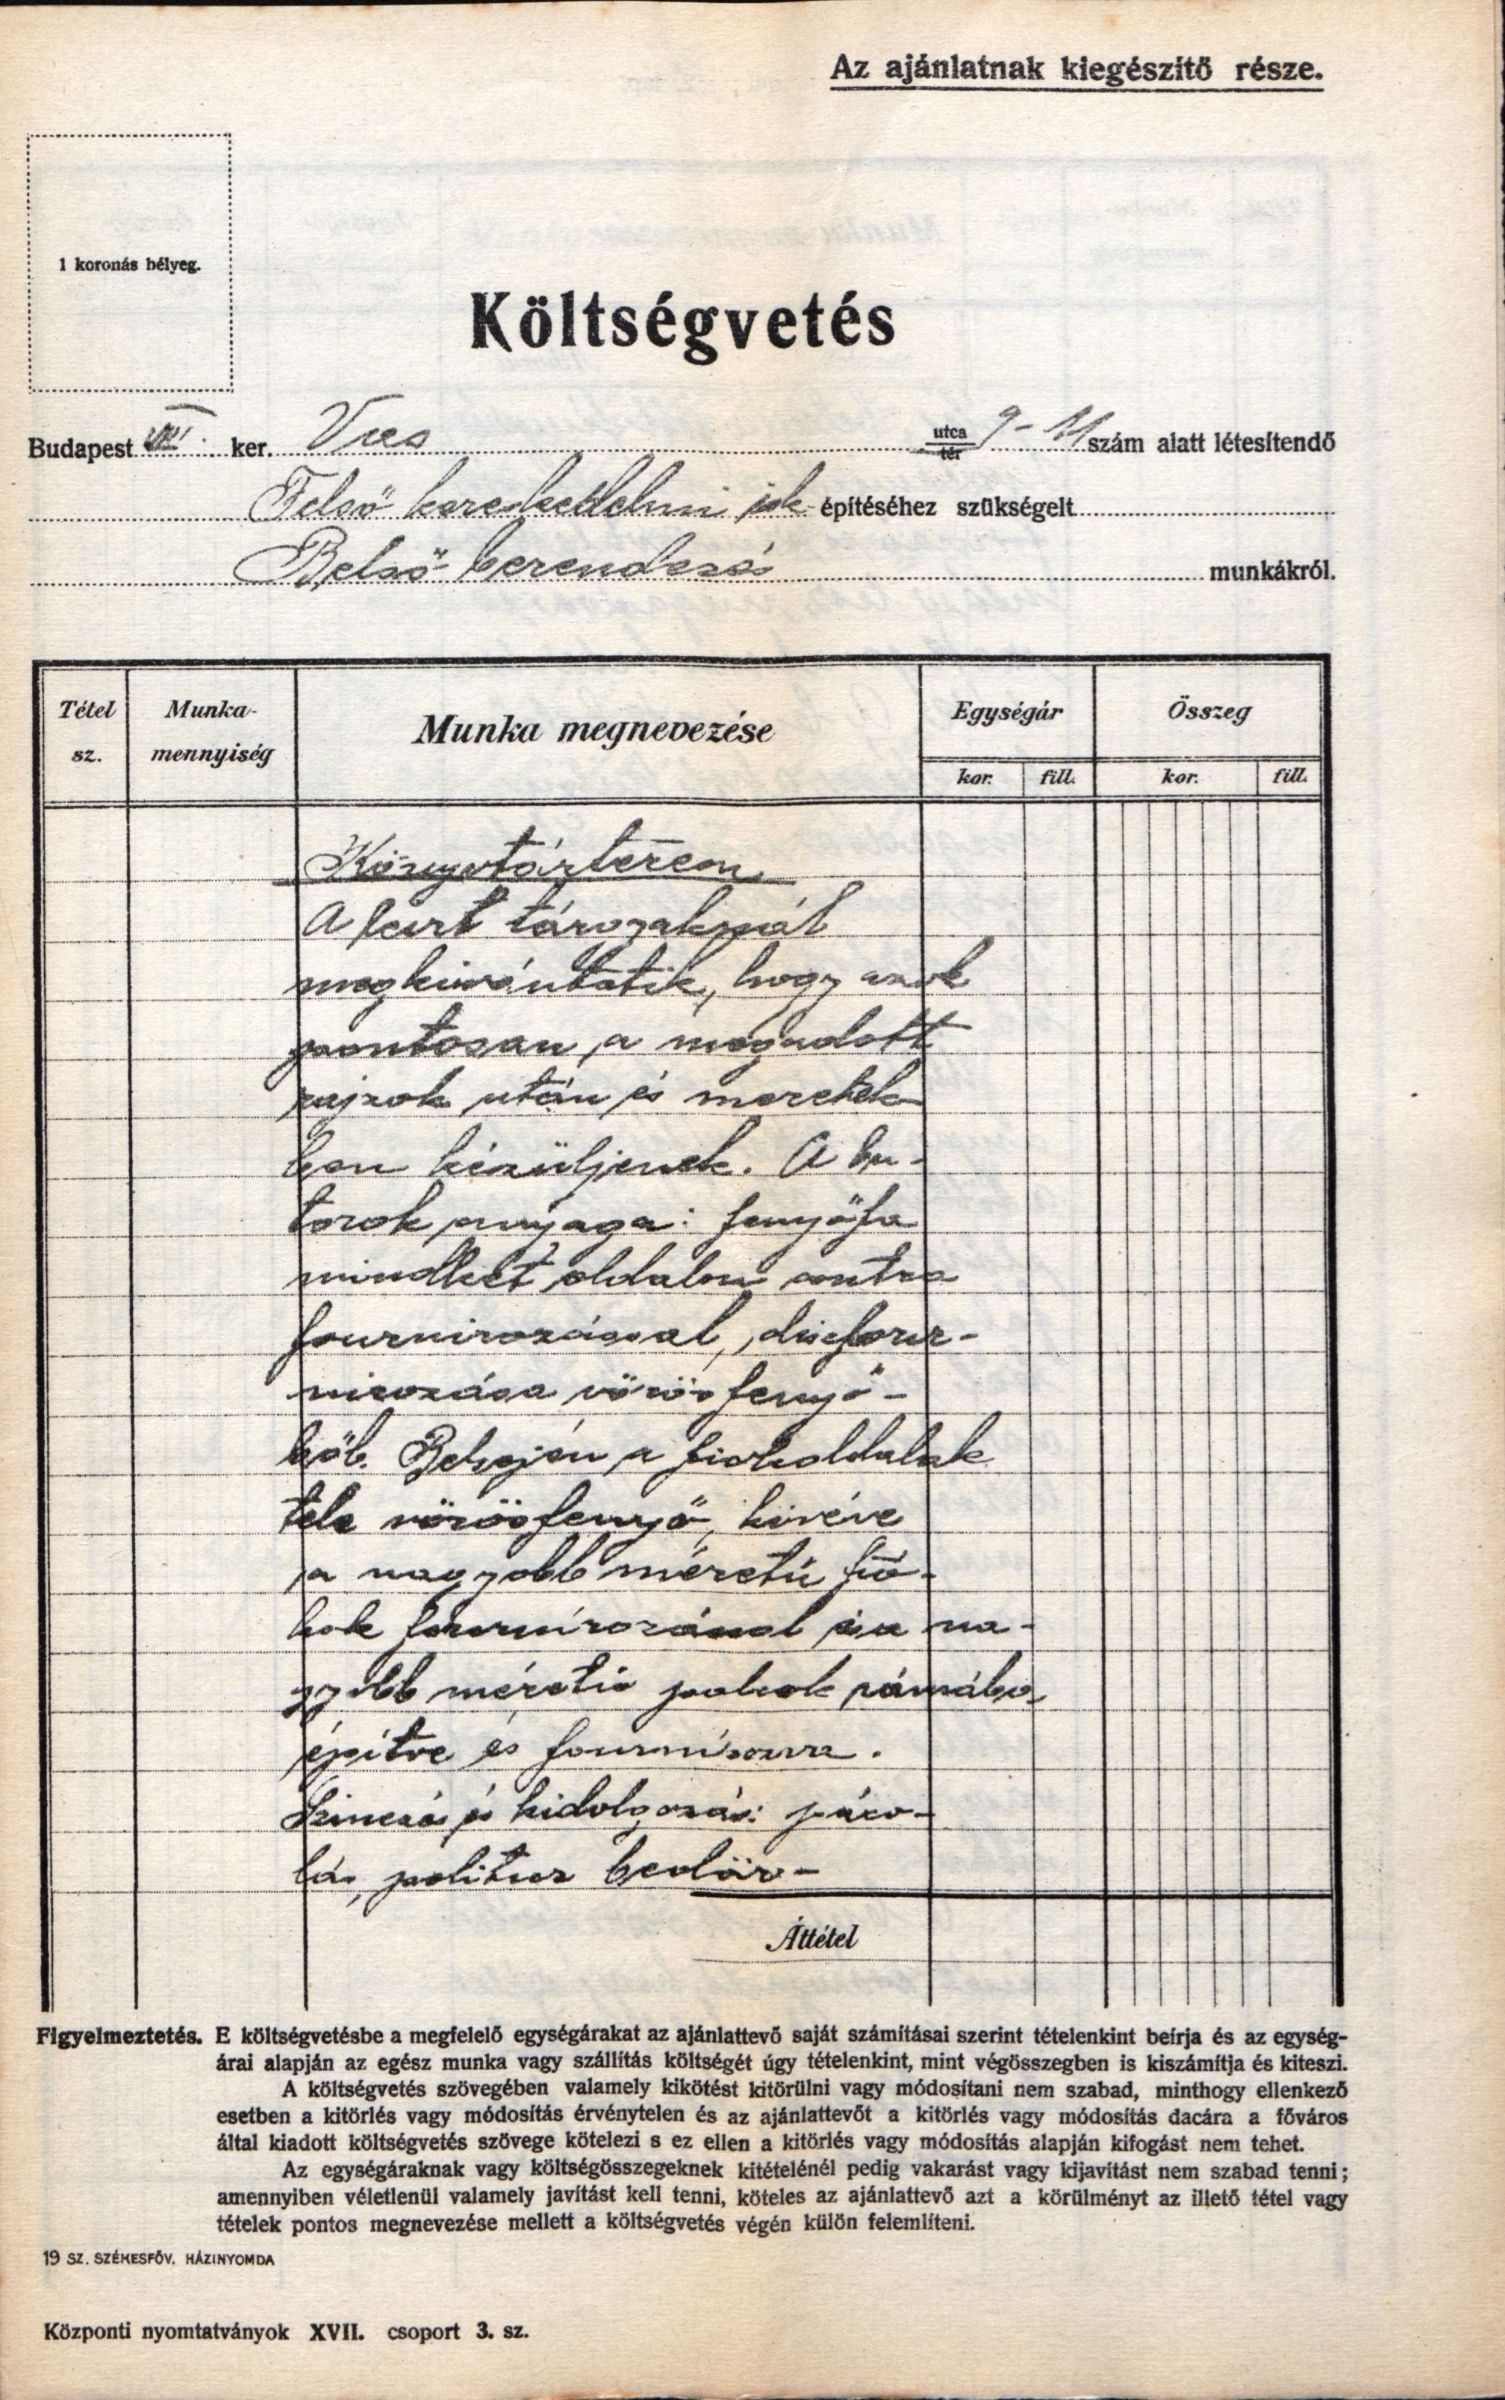 Az ajánlatnak kiegészítő része.
1 koronás bélyeg.
Költségvetés
Budapest VIII. ker. Vas utca tér 9-11 szám alatt létesítendő
Felső kereskedelmi isk. építéséhez szükségelt
Belső berendezés munkákról.
Tétel sz. Munka-mennyiség Munka megnevezése Egységár Összeg
kor. fill. kor. fill.
Könyvtárterem
A leirt tárgyaknál
megkivántatik, hogy azok
pontosan a megadott
rajzok után és méretek-
ben készüljenek. A bu-
torok anyaga: fenyőfa
mindkét oldalon contra
fournirozással, diszfour-
nirozása vörös fenyő-
ből. Belsején a fiokoldalak
tele vörösfenyő, kivéve
a nagyobb méretű fió-
kok fournirozással és a na-
gyobb méretű polcok rámába
épitve és fournirozva.
Szinezés és kidolgozás: páco-
lás, politur beolör-
Áttétel
Figyelmeztetés. E költségvetésbe a megfelelő egységárakat az ajánlattevő saját számításai szerint tételenkint beírja és az egység-
árai alapján az egész munka vagy szállítás költségét úgy tételenkint, mint végösszegben is kiszámítja és kiteszi.
A költségvetés szövegében valamely kikötést kitörülni vagy módosítani nem szabad, minthogy ellenkező
esetben a kitörlés vagy módosítás érvénytelen és az ajánlattevőt a kitörlés vagy módosítás dacára a főváros
által kiadott költségvetés szövege kötelezi s ez ellen a kitörlés vagy módosítás alapján kifogást nem tehet.
Az egységáraknak vagy költségösszegeknek kitételénél pedig vakarást vagy kijavítást nem szabad tenni;
amennyiben véletlenül valamely javítást kell tenni, köteles az ajánlattevő azt a körülményt az illető tétel vagy
tételek pontos megnevezése mellett a költségvetés végén külön felemlíteni.
19 SZ. SZÉKESFŐV. HÁZINYOMDA
Központi nyomtatványok XVII. csoport 3. sz.